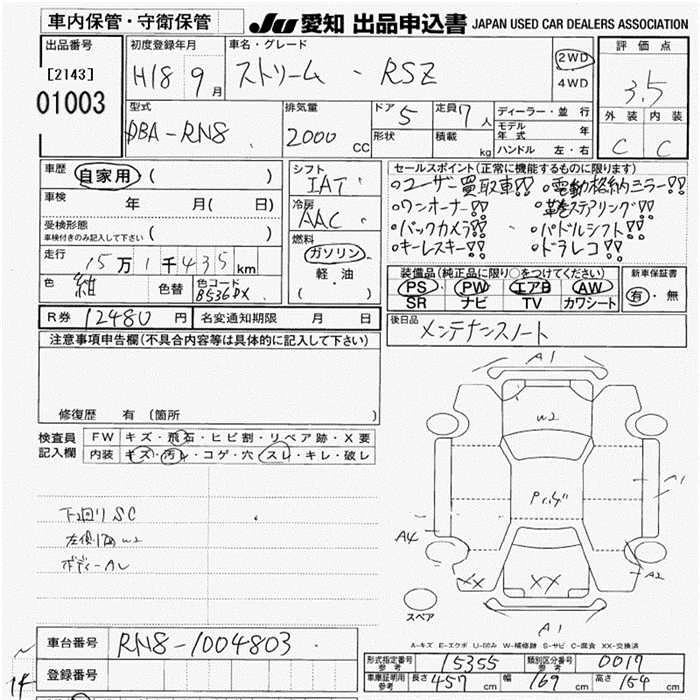 車内保管・守衛保管
JU 愛知 出品申込書 JAPAN USED CAR DEALERS ASSOCIATION
出品番号 初度登録年月 車名・グレード 評価点
[2143] H18 9月 ストリーム RSZ 2WD 3.5
01003 4WD
型式 排気量 ドア 5 定員 7人 ディーラー・並行 外装 内装
DBA-RN8 2000CC 形状 積載 kg モデル年式 年 C C
ハンドル 左・右
車歴 自家用 ( ) シフト IAT セールスポイント(正常に機能するものに限ります)
車検 年 月( 日) 冷房 AAC
○ユーザー買取車!! ○電動格納ミラー!!
○ワンオーナー!! ○革巻ステアリング!!
受検形態 ( ) 燃料
車検付きのみ記入して下さい
○バックカメラ!! ○パドルシフト!!
○キーレスキー!! ○ドラレコ!!
走行 15万1千435km ガソリン
軽・油
( )
装備品(純正品に限り○をつけてください) 新車保証書
色 紺 色替 色コード B536PX
PS PW エアB AW 有・無
SR ナビ TV カワシート
R券 12480円 名変通知期限 月 日
後日品 メンテナンスノート
注意事項申告欄(不具合内容等は具体的に記入して下さい)
修復歴 有 (箇所 )
検査員 FW キズ・飛石・ヒビ割・リペア跡・X要
記入欄 内装 キズ・汚レ・コゲ・穴・スレ・キレ・破レ
下回りSC
ボディーAU
A1
W2
A1
A4
A2
XX XX
A1
スペア
A-キズ E-エクボ U-凹み W-補修跡 S-サビ C-腐食 XX-交換済
車台番号 RN8-1004803
登録番号
型式指定番号 参考 15355 類別区分番号 参考 0017
車庫証明用 参考 長さ 457cm 幅 169cm 高さ 154cm